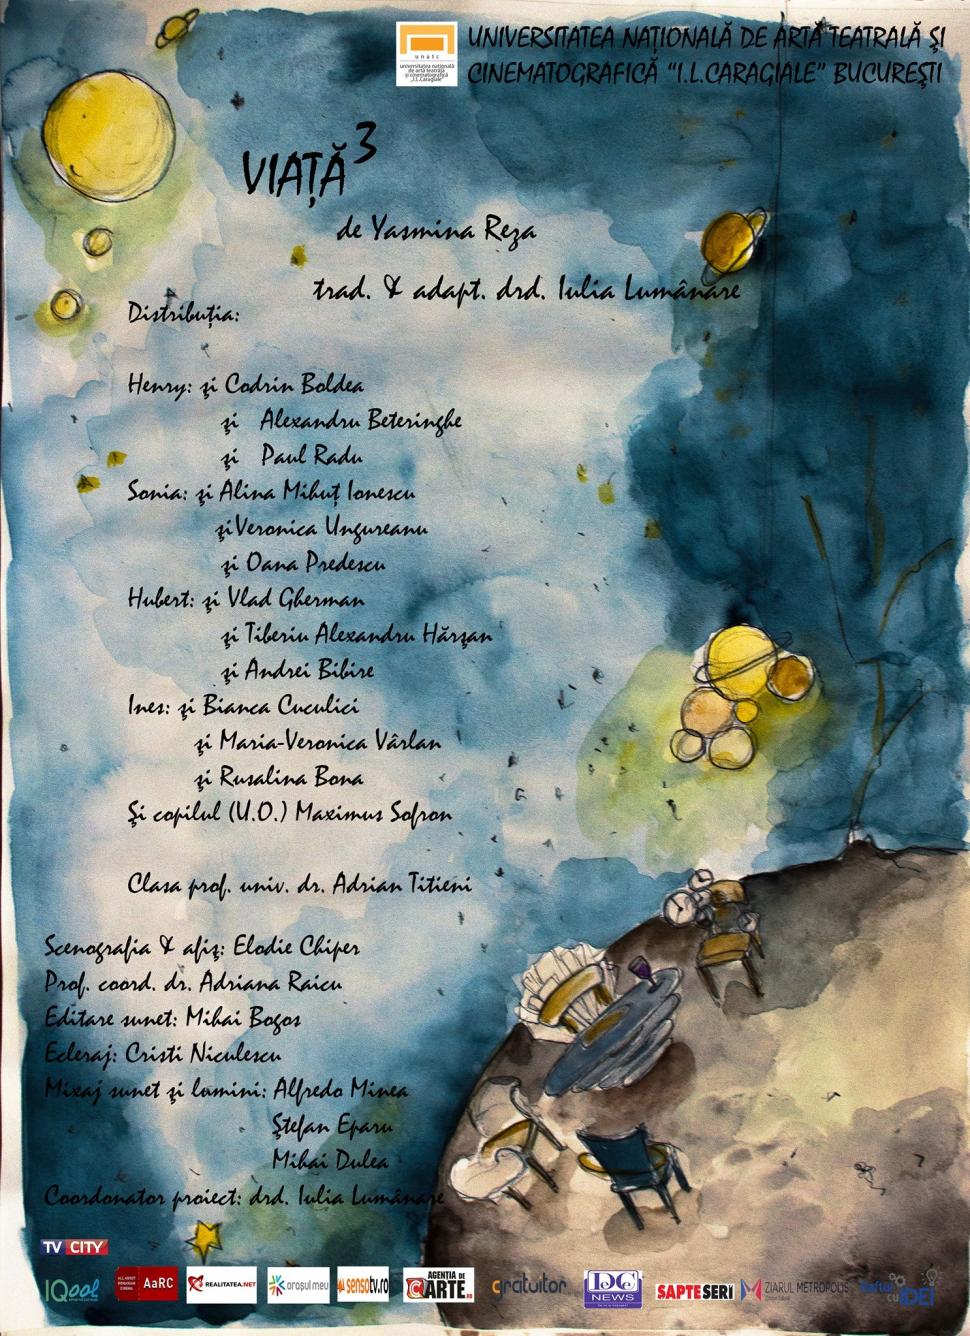 UNIVERSITATEA NAȚIONALĂ DE ARTĂ TEATRALĂ ȘI
CINEMATOGRAFICĂ "I.L.CARAGIALE" BUCUREȘTI
unatc
universitatea națională
de artă teatrală
și cinematografică
„I.L. Caragiale"
VIAȚĂ³
de Yasmina Reza
trad. & adapt. drd. Iulia Lumânare
Distribuția:
Henry: și Codrin Boldea
și Alexandru Beteringhe
și Paul Radu
Sonia: și Alina Mihuț Ionescu
și Veronica Ungureanu
și Oana Predescu
Hubert: și Vlad Gherman
și Tiberiu Alexandru Hărșan
și Andrei Bibire
Ines: și Bianca Cuculici
și Maria-Veronica Vârlan
și Rusalina Bona
Și copilul (U.O.) Maximus Sofron
Clasa prof. univ. dr. Adrian Titieni
Scenografia & afiș: Elodie Chiper
Prof. coord. dr. Adriana Raicu
Editare sunet: Mihai Bogos
Ecleraj: Cristi Niculescu
Mixaj sunet și lumini: Alfredo Minea
Ștefan Eparu
Mihai Dulea
Coordonator proiect: drd. Iulia Lumânare
TV CITY
IQool
ALL ABOUT ROMANIAN CINEMA AaRC
REALITATEA.NET
orașul meu
sensotv.ro
AGENȚIA DE CARTE.RO
gratuitor
DC NEWS
SAPTE SERI
ZIARUL METROPOLIS
Raftul cu IDEI